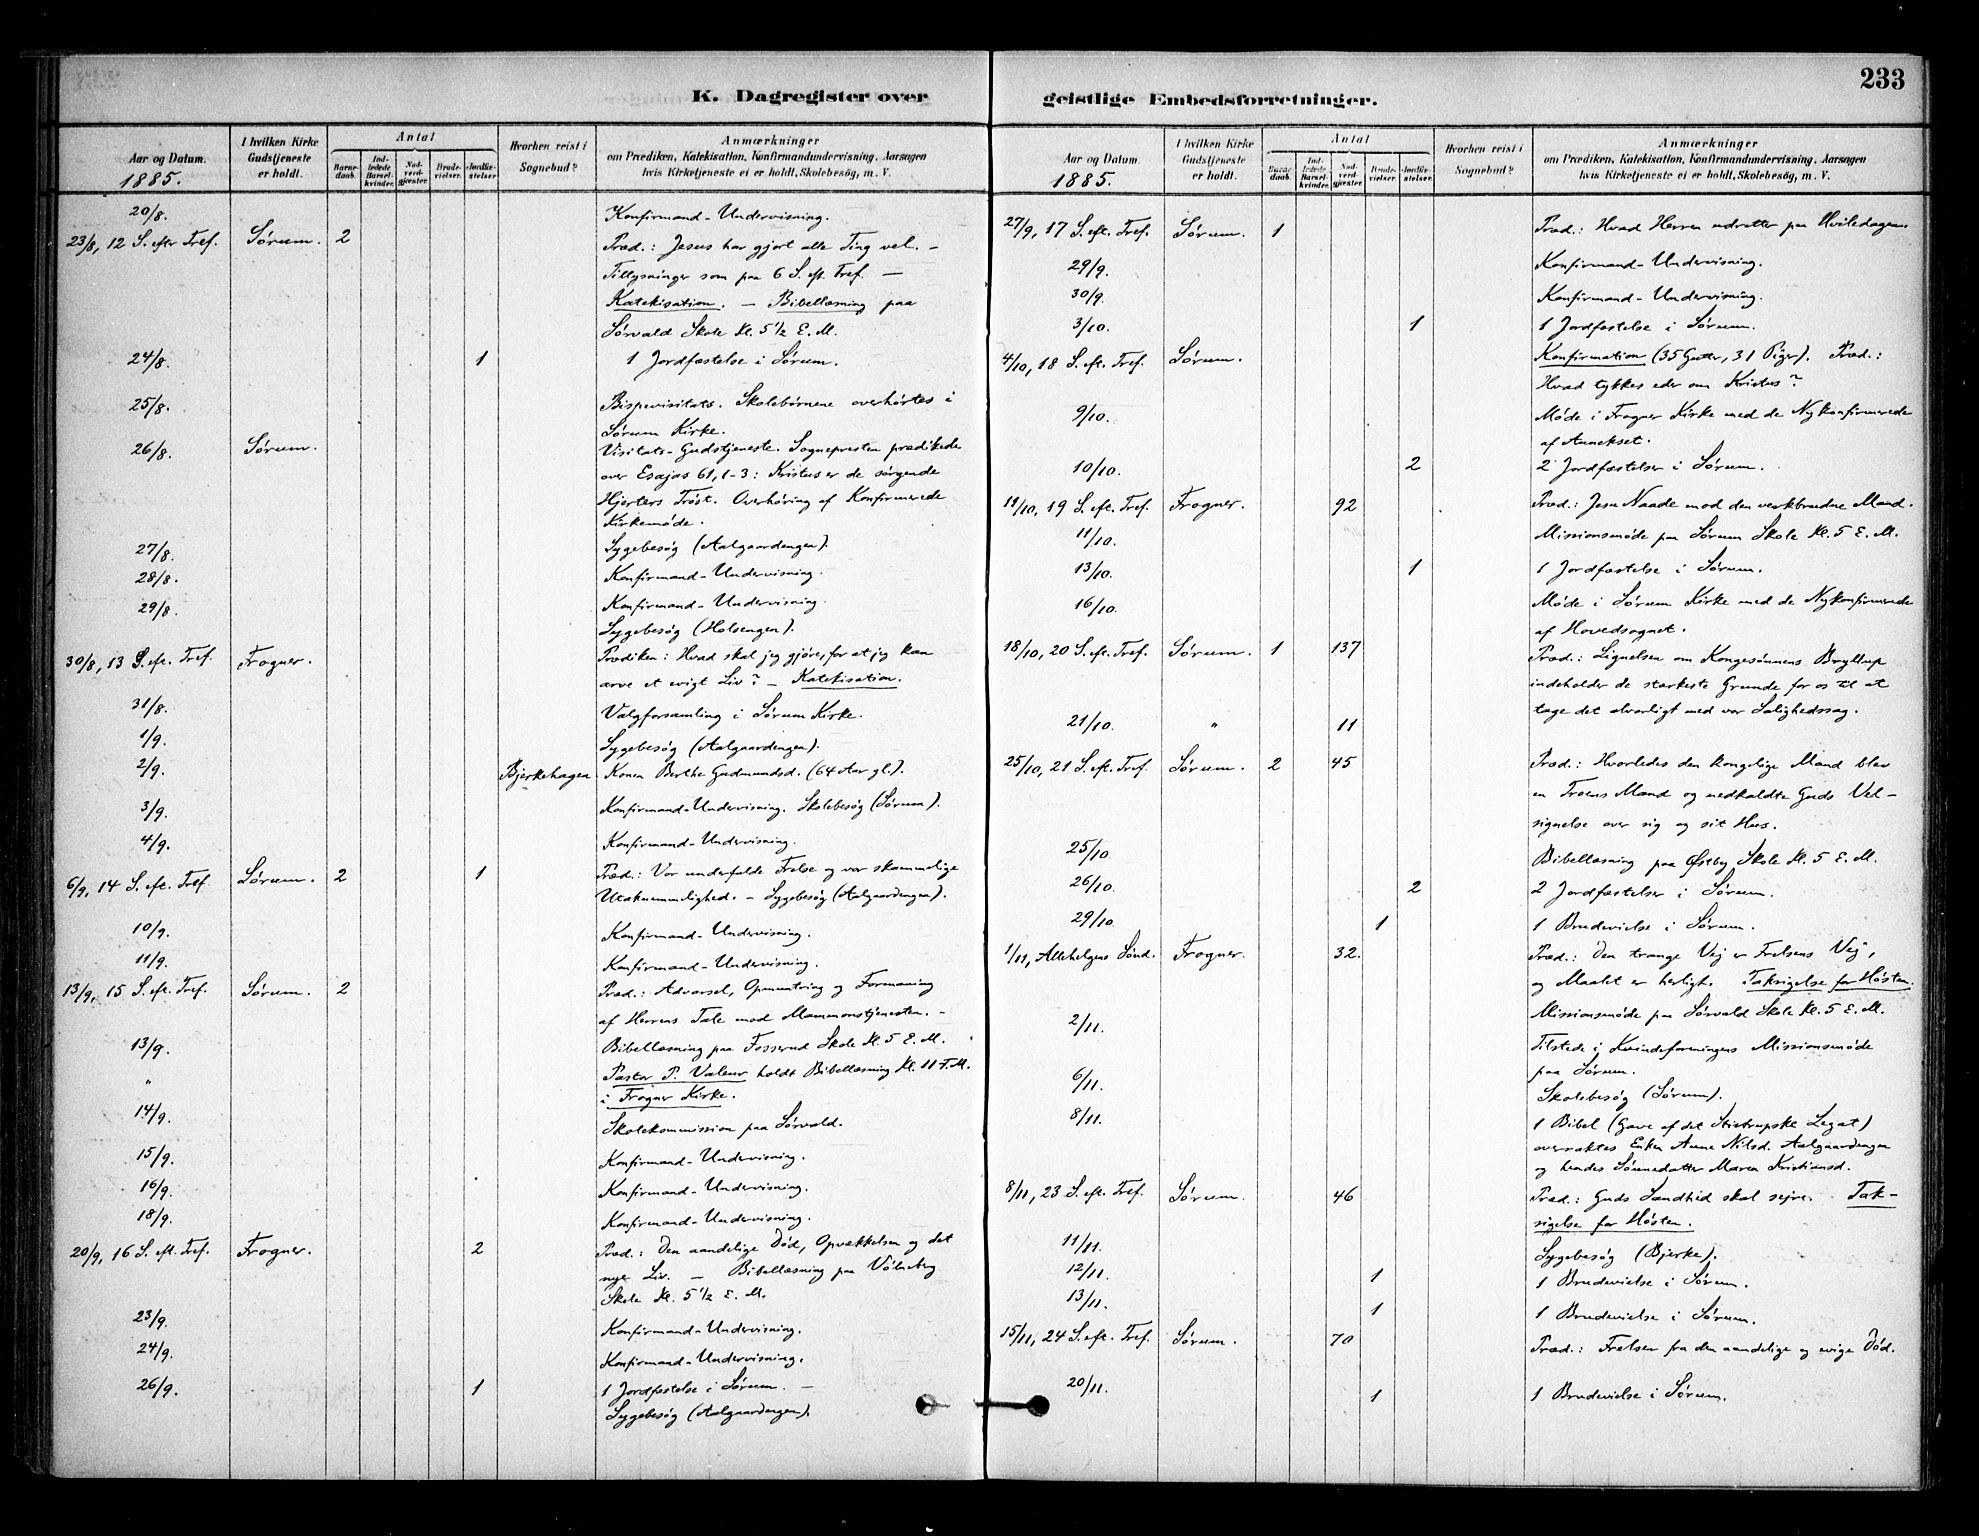 233
K. Dagregister over
Aar og Datum.
1885.
I hvilken Kirke Gudstjeneste er holdt.
Antal
Barnedaab.
Indledede Barselkvinder.
Nadverdgjester.
Brudevielser.
Jordfæstelser.
Hvorhen reist i Sognebud?
Anmærkninger
om Prædiken, Katekisation, Konfirmandundervisning, Aarsagen
hvis Kirketjeneste ei er holdt, Skolebesøg, m. V.
20/8. Konfirmand-Undervisning.
23/8, 12 S. efter Tref. Sørum. 2 Præd.: Jesus har gjort alle Ting vel. –
Tillysninger som paa 6 S. eft. Tref. –
Katekisation. – Bibellæsning paa
Sørvald Skole Kl. 5 1/2 E. M.
24/8. 1 1 Jordfæstelse i Sørum.
25/8. Bispevisitats. Skolebørnene overhørtes i
Sørum Kirke.
26/8. Sørum. Visitats-Gudstjeneste. Sognepresten prædikede
over Esajas 61, 1-3: Kristus er de sørgende
Hjerters Trøst. Overhøring af Konfirmerede
Kirkemøde.
27/8. Sygebesøg (Aalgaardengen).
28/8. Konfirmand-Undervisning.
29/8. Konfirmand-Undervisning.
Sygebesøg (Holsengen).
30/8, 13 S. eft. Tref. Frogner. Prædiken: Hvad skal jeg gjøre, for at jeg kan
arve et evigt Liv? – Katekisation.
31/8. Valgforsamling i Sørum Kirke.
1/9. Sygebesøg (Aalgaardengen).
2/9. Bjerkehagen Konen Berthe Gudmundsd. (64 Aar gl.).
3/9. Konfirmand-Undervisning. Skolebesøg (Sørum).
4/9. Konfirmand-Undervisning.
6/9, 14 S. eft. Tref. Sørum. 2 1 Præd.: Vor underfulde Frelse og vor skammelige
Utaknemmelighed. – Sygebesøg (Aalgaardengen).
10/9. Konfirmand-Undervisning.
11/9. Konfirmand-Undervisning.
13/9, 15 S. eft. Tref. Sørum. 2 Præd.: Advarsel, Opmuntring og Formaning
af Herrens Tale mod Mammonstjenesten. –
13/9. Bibellæsning paa Fosserud Skole Kl. 5 E. M.
" Pastor P. Valeur holdt Bibellæsning Kl. 11 F. M.
i Frogner Kirke.
14/9. Skolekommission paa Sørvald.
15/9. Konfirmand-Undervisning.
16/9. Konfirmand-Undervisning.
18/9. Konfirmand-Undervisning.
20/9, 16 S. eft. Tref. Frogner. 2 Præd.: Den aandelige Død, Opvækkelsen og det
nye Liv. – Bibellæsning paa Vølneberg
Skole Kl. 5 1/2 E. M.
23/9. Konfirmand-Undervisning.
24/9. Konfirmand-Undervisning.
26/9. 1 1 Jordfæstelse i Sørum. –
Sygebesøg (Aalgaardengen).
geistlige Embedsforretninger.
Aar og Datum
1885.
I hvilken Kirke Gudstjeneste er holdt.
Antal
Barnedaab.
Indledede Barselkvinder.
Nadverdgjester.
Brudevielser.
Jordfæstelser.
Hvorhen reist i Sognebud?
Anmærkninger
om Prædiken, Katekisation, Konfirmandundervisning, Aarsagen
hvis Kirketjeneste ei er holdt, Skolebesøg, m. V.
27/9, 17 S. eft. Tref. Sørum. 1 Præd.: Hvad Herren udretter paa Hviledagen.
29/9. Konfirmand-Undervisning.
30/9. Konfirmand-Undervisning.
3/10. 1 1 Jordfæstelse i Sørum.
4/10, 18 S. eft. Tref. Sørum. Konfirmation (35 Gutter, 31 Piger). Præd.:
Hvad tykkes eder om Kristus?
9/10. Møde i Frogner Kirke med de Nykonfirmerede
af Annekset.
10/10. 2 2 Jordfæstelser i Sørum.
11/10, 19 S. eft. Tref. Frogner. 92 Præd.: Jesu Naade mod den verkbrudne Mand.
11/10. Missionsmøde paa Sørum Skole Kl. 5 E. M.
13/10. 1 1 Jordfæstelse i Sørum.
16/10. Møde i Sørum Kirke med de Nykonfirmerede
af Hovedsognet.
18/10, 20 S. eft. Tref. Sørum. 1 137 Præd.: Lignelsen om Kongesønnens Bryllup
indeholder de stærkeste Grunde for os til at
tage det alvorligt med vor Salighedssag.
21/10. " 11
25/10, 21 S. eft. Tref. Sørum. 2 45 Præd.: Hvorledes den kongelige Mand blev
en Troens Mand og nedkaldte Guds Vel-
signelse over sig og sit Hus.
25/10. Bibellæsning paa Østby Skole Kl. 5 E. M.
26/10. 2 2 Jordfæstelser i Sørum.
29/10. 1 1 Brudevielse i Sørum.
1/11, Allehelgens Sønd. Frogner. 32. Præd.: Den trange Vej er Frelsens Vej,
og Maalet er herligt. Taksigelse for Høsten.
Missionsmøde paa Sørvald Skole Kl. 5 E. M.
2/11. Tilstede i Kvindeforeningens Missionsmøde
paa Sørum.
6/11. Skolebesøg (Sørum).
8/11. 1 Bibel (Gave af det Stistrupske Legat)
overraktes Enken Anne Nilsd. Aalgaardengen
og hendes Sønnedatter Maren Kristiansd.
8/11, 23 S. eft. Tref. Sørum. 46 Præd.: Guds Sandhed skal sejre. Tak-
sigelse for Høsten.
11/11. Sygebesøg (Bjerke).
12/11. 1 1 Brudevielse i Sørum.
13/11. 1 1 Brudevielse i Sørum.
15/11, 24 S. eft. Tref. Sørum. 70 Præd.: Frelsen fra den aandelige og evige Død.
20/11. 1 1 Brudevielse i Sørum.